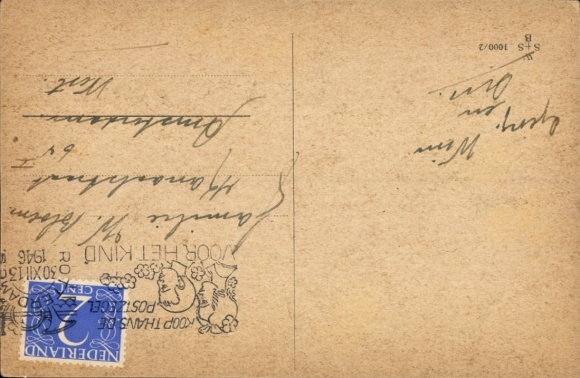 NEDERLAND
2
CENT
KOOP THANS DE
POSTZEGEL
VOOR HET KIND
30 XII 13
1946
Familie W. Bloem
Kanaalstraat
64 I
Amsterdam
West
Wim
en
S + S 1000/2
B